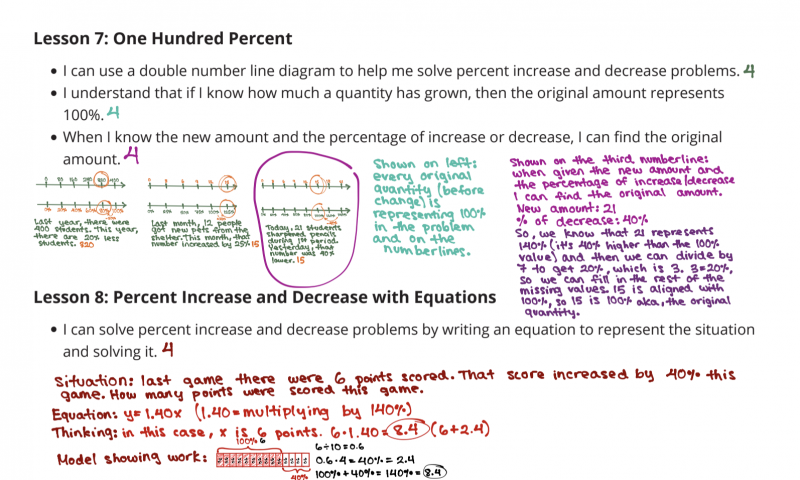 Lesson 7: One Hundred Percent
• I can use a double number line diagram to help me solve percent increase and decrease problems. 4
• I understand that if I know how much a quantity has grown, then the original amount represents
100%. 4
• When I know the new amount and the percentage of increase or decrease, I can find the original
amount. 4
Last year, there were
400 students. This year,
there are 20% less
students. 320
Last month, 12 people
got new pets from the
shelter. This month, that
number increased by 25% 15
Today, 21 students
sharpened pencils
during 1st period.
Yesterday, that
number was 40%
lower. 15
Shown on left:
every original
quantity (before
change) is
representing 100%
in the problem
and on the
numberlines.
Shown on the third numberline:
when given the new amount and
the percentage of increase/decrease
I can find the original amount.
New amount: 21
% of decrease: 40%
So, we know that 21 represents
140% (it's 40% higher than the 100%
value) and then we can divide by
7 to get 20%, which is 3. 3=20%,
so we can fill in the rest of the
missing values. 15 is aligned with
100%, so 15 is 100% aka, the original
quantity.
Lesson 8: Percent Increase and Decrease with Equations
• I can solve percent increase and decrease problems by writing an equation to represent the situation
and solving it. 4
Situation: last game there were 6 points scored. That score increased by 40% this
game. How many points were scored this game.
Equation: y=1.40x (1.40=multiplying by 140%)
Thinking: in this case, x is 6 points. 6·1.40=8.4 (6+2.4)
100% 6
Model showing work:
40%
6÷10=0.6
0.6·4=40%=2.4
100%+40%=140%=8.4